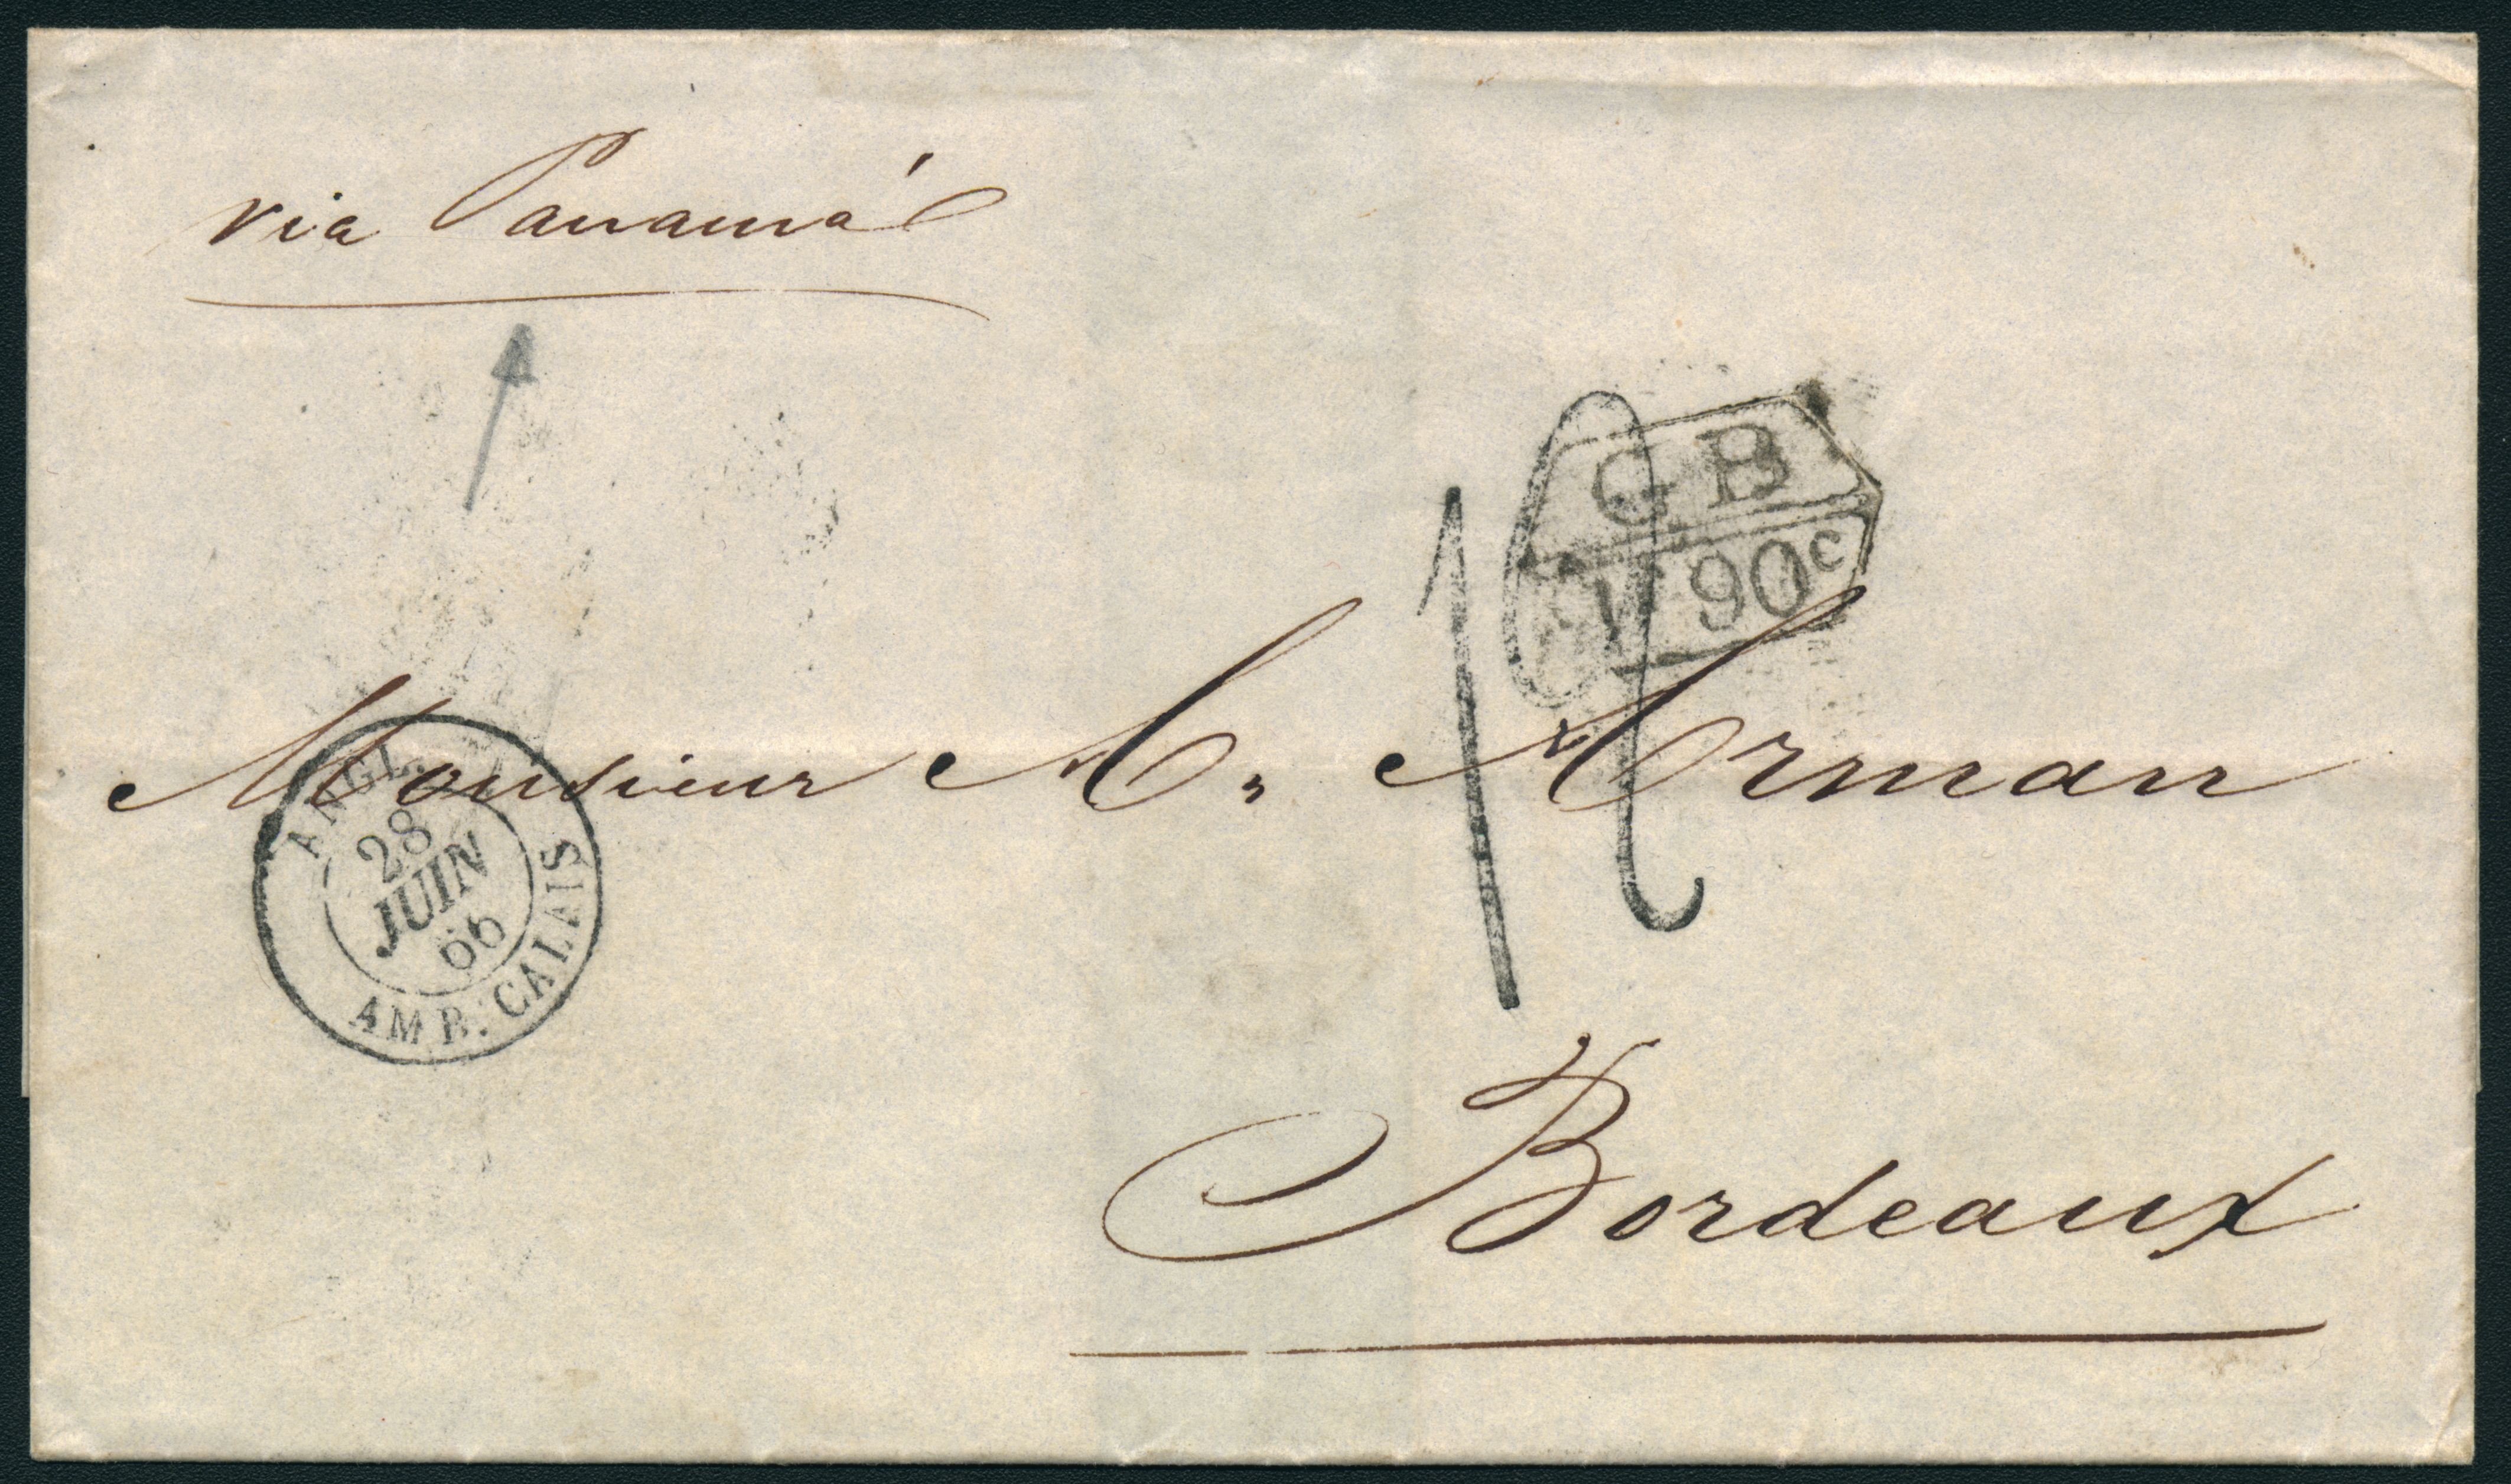 via Panamá
GB
1F 90c
Monsieur A. Arman
ANGL.
28
JUIN
66
AMB. CALAIS
Bordeaux